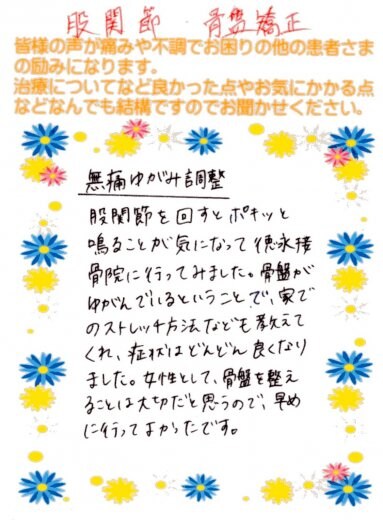 股関節　骨盤矯正
皆様の声が痛みや不調でお困りの他の患者さま
の励みになります。
治療についてなど良かった点やお気にかかる点
などなんでも結構ですのでお聞かせください。
無痛ゆがみ調整
股関節を回すとポキッと
鳴ることが気になって徳永接
骨院に行ってみました。骨盤が
ゆがんでいるということで、家で
のストレッチ方法なども教えて
くれ、症状はどんどん良くなり
ました。女性として、骨盤を整え
ることは大切だと思うので、早め
に行ってよかったです。